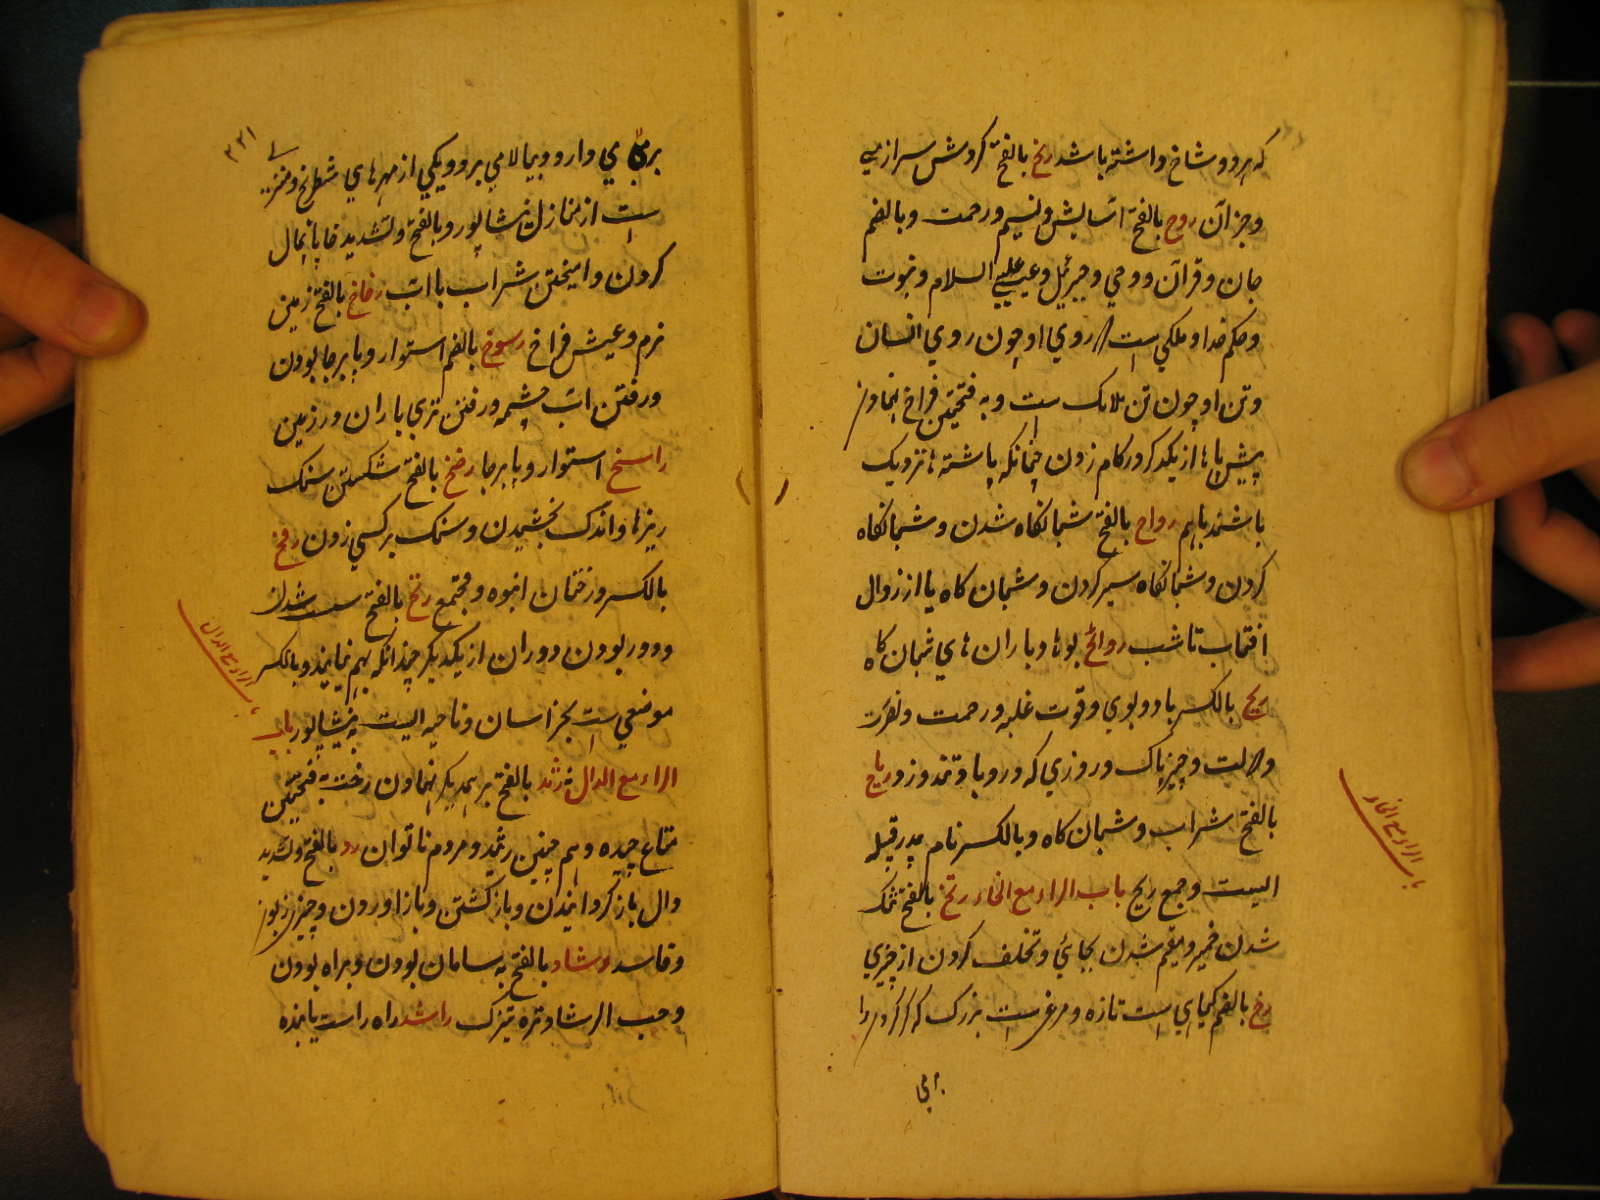 که هر دو شاخ داشته باشد ریح بالفتح کردش سراز می
وجز آن روح بالفتح اسایش ونسیم ورحمت وبالضم
جان وقرآن ووحي وجبرئیل وعیسي علیه السلام ونبوت
وحکم خدا وملکي است روي او چون روي انسان
وتن او چون تن ملایک ست وبه فتحتین فراخ نهادن
پیش پاها از یکدکر در کام زدن چنانکه پاشنه ها نزدیک
باشند باهم رواح بالفتح شبانکاه شدن وشبانکاه
کردن وشبانکاه سیر کردن وشبان کاه یا از زوال
افتاب تا شب روائح بوها وباران هاي شبان کاه
ریح بالکسر باد وبوي وقوت غلبه ورحمت ونصرت
ودولت وچیز پاک وروزي که درو باد تند وزد ریاح
بالفتح شراب وشبان کاه وبالکسر نام پدر قبیله
ایست وجمع ریح باب الراء مع الخاء رتخ بالفتح تنک
شدن خمیر ومقیم شدن بجائي وتخلف کردن از چیزي
رخ بالضم کیاهي است تازه ومرغي ست بزرک که کرکدن را
بر مي دارد وببالا مي برد ویکي از مهرهاي شطرنج ومنزلي
است از منازل نیشاپور وبالفتح وتشدید خا پایمال
کردن وامیختن شراب با اب رخاخ بالفتح زمین
نرم وعیش فراخ رسوخ بالضم استوار وپا برجا بودن
ورفتن اب چشمه ورفتن تري باران در زمین
راسخ استوار وپا برجا رضخ بالفتح شکستن سنک
ریزها واندک بخشیدن وسنک بر کسي زدن
بالکسر درختان انبوه ومجتمع ریخ بالفتح سست شدن
ودور بودن دوران از یکدیکر چندانکه بهم نمایند وبالکسر
موضعي ست بخراسان وناحیه ایست به نیشاپور باب
الراء مع الدال رثد بالفتح بر یکدیکر نهادن رخت به فتحتین
متاع چیده وهم چنین رثید ومردم ناتوان رد بالفتح وتشدید
دال باز کردانیدن وباز کشتن وباز اوردن وچیزي زبون
وفاسد رشاد بالفتح به سامان بودن وبراه بودن
وحب الرشاد تره تیزک راشد راه راست یابنده
باب الراء مع الخاء
باب الراء مع الدال
۲۲۱